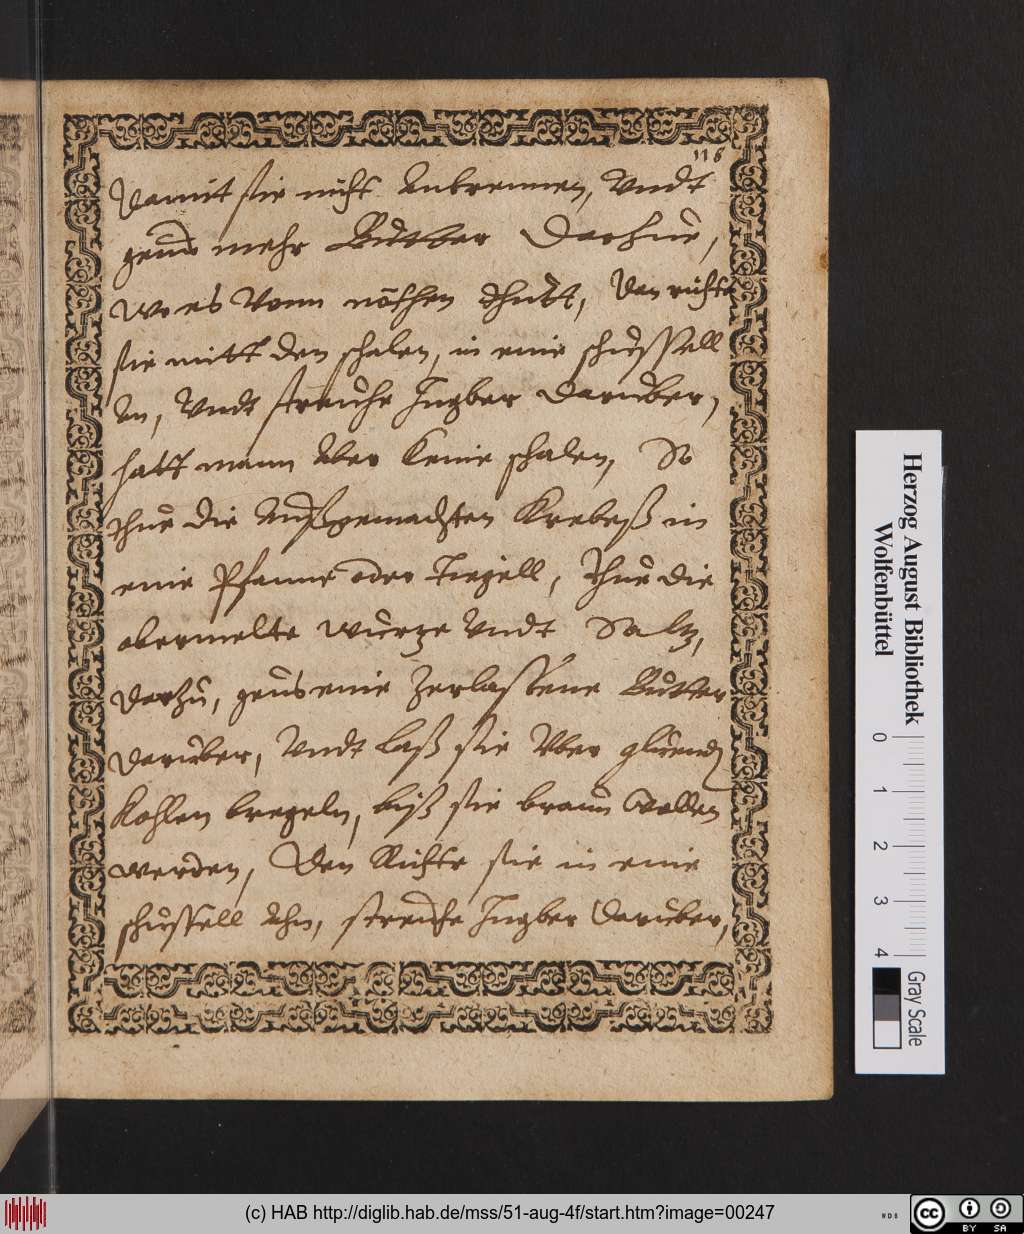 116
damit sie nicht anbrennen, Vndt
geus mehr Butter darhue,
wo es Vonn nöthen thutt, den richte
sie mitt den schalen, in einie schussell
an, Vndt streiche Ingber daruber,
hatt mann aber keine schalen, So
thue die Außgemachten Krebeß in
einie Pfanne oder Tiegell, Thue die
obermelte wurze Vndt Saltz,
darzu, geus einie Zerlassene Butter
daruber, Vndt laß sie Vber gluend
Kohlen bregeln, biß sie braun wollen
werden, Den Richte sie in einie
schussell Ahn, streiche Ingber daruber,
Herzog August Bibliothek
Wolfenbüttel
0 1 2 3 4
Gray Scale
(c) HAB http://diglib.hab.de/mss/51-aug-4f/start.htm?image=00247
WDB
cc BY SA